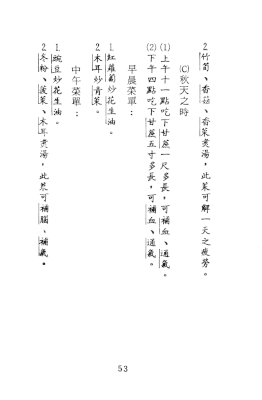 2.竹筍、香菇、香菜煮湯，此菜可解一天之疲勞。
(C)秋天之時
(1)上午十一點吃下甘蔗一尺多長，可補血、通氣。
(2)下午四點吃下甘蔗五寸多長，可補血、通氣。
早晨菜單：
1.紅蘿蔔炒花生油。
2.木耳炒青菜。
中午菜單：
1.豌豆炒花生油。
2.冬粉、菠菜、木耳煮湯，此菜可補腦、補氣。
53